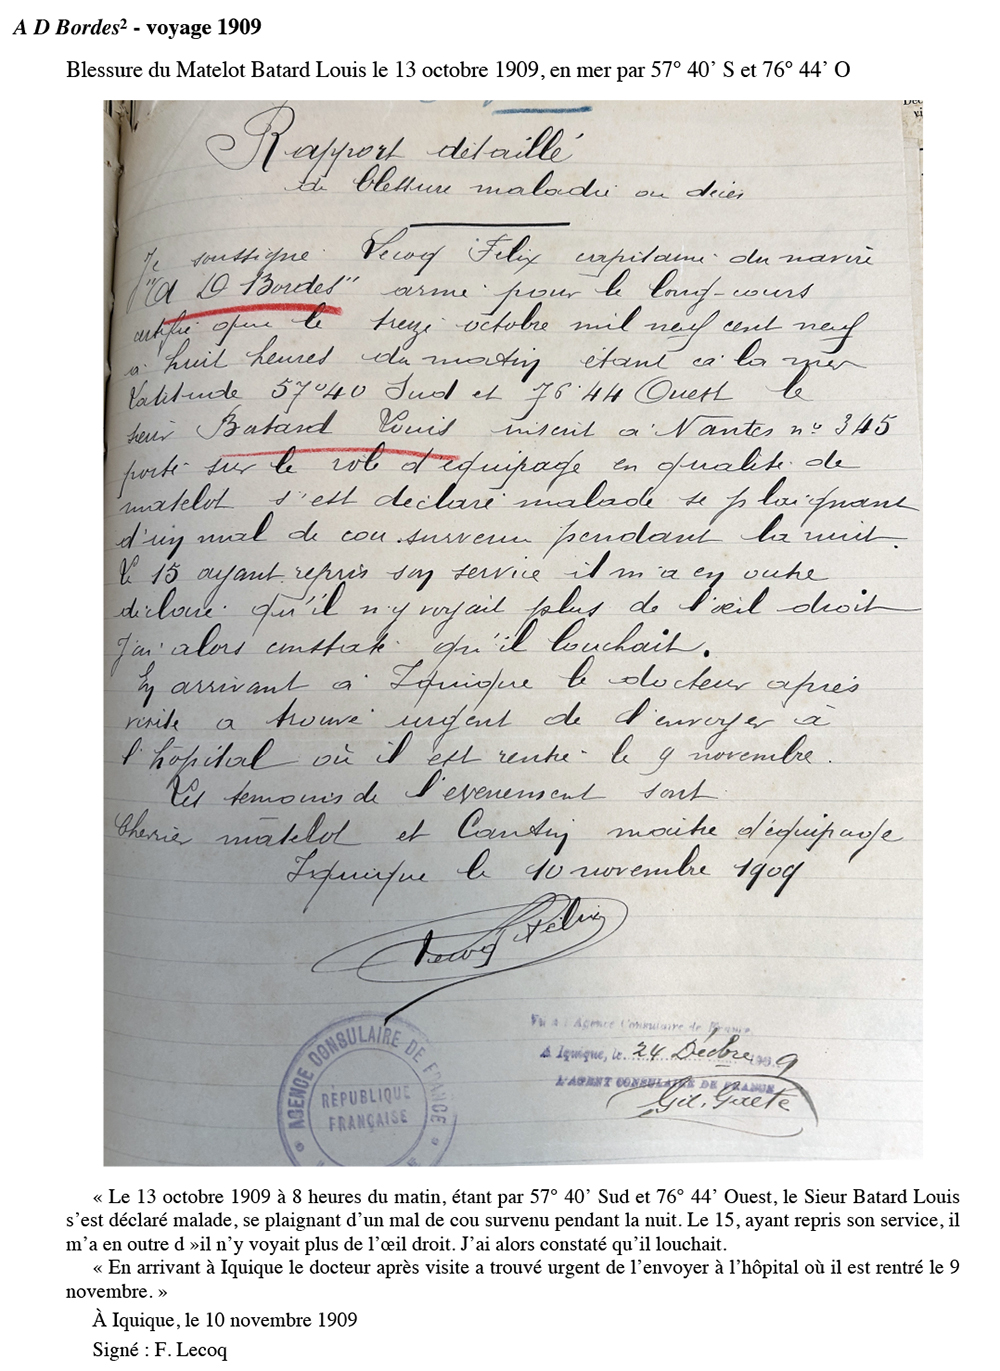 A D Bordes² - voyage 1909
Blessure du Matelot Batard Louis le 13 octobre 1909, en mer par 57° 40’ S et 76° 44’ O
Rapport détaillé
de blessure maladie ou décès
Je soussigné Lecoq Felix capitaine du navire
"A D Bordes" armé pour le long-cours
certifie que le treize octobre mil neuf cent neuf
à huit heures du matin étant à la mer
Latitude 57°40 Sud et 76°44 Ouest le
sieur Batard Louis inscrit à Nantes n° 345
porté sur le rôle d'équipage en qualité de
matelot s'est déclaré malade se plaignant
d'un mal de cou survenu pendant la nuit.
Le 15 ayant repris son service il m'a en outre
déclaré qu'il n'y voyait plus de l'œil droit
J'ai alors constaté qu'il louchait.
En arrivant à Iquique le docteur après
visite a trouvé urgent de l'envoyer à
l'hôpital où il est rentré le 9 novembre.
Les temoins de l'evenement sont
Cherrier matelot et Cantin maitre d'équipage
Iquique le 10 novembre 1909
Lecoq Félix
AGENCE CONSULAIRE DE FRANCE
RÉPUBLIQUE
FRANÇAISE
Vu à l'Agence Consulaire de France
A Iquique, le 24 Décbre 1909
L'AGENT CONSULAIRE DE FRANCE
« Le 13 octobre 1909 à 8 heures du matin, étant par 57° 40’ Sud et 76° 44’ Ouest, le Sieur Batard Louis
s’est déclaré malade, se plaignant d’un mal de cou survenu pendant la nuit. Le 15, ayant repris son service, il
m’a en outre d »il n’y voyait plus de l’œil droit. J’ai alors constaté qu’il louchait.
« En arrivant à Iquique le docteur après visite a trouvé urgent de l’envoyer à l’hôpital où il est rentré le 9
novembre. »
À Iquique, le 10 novembre 1909
Signé : F. Lecoq